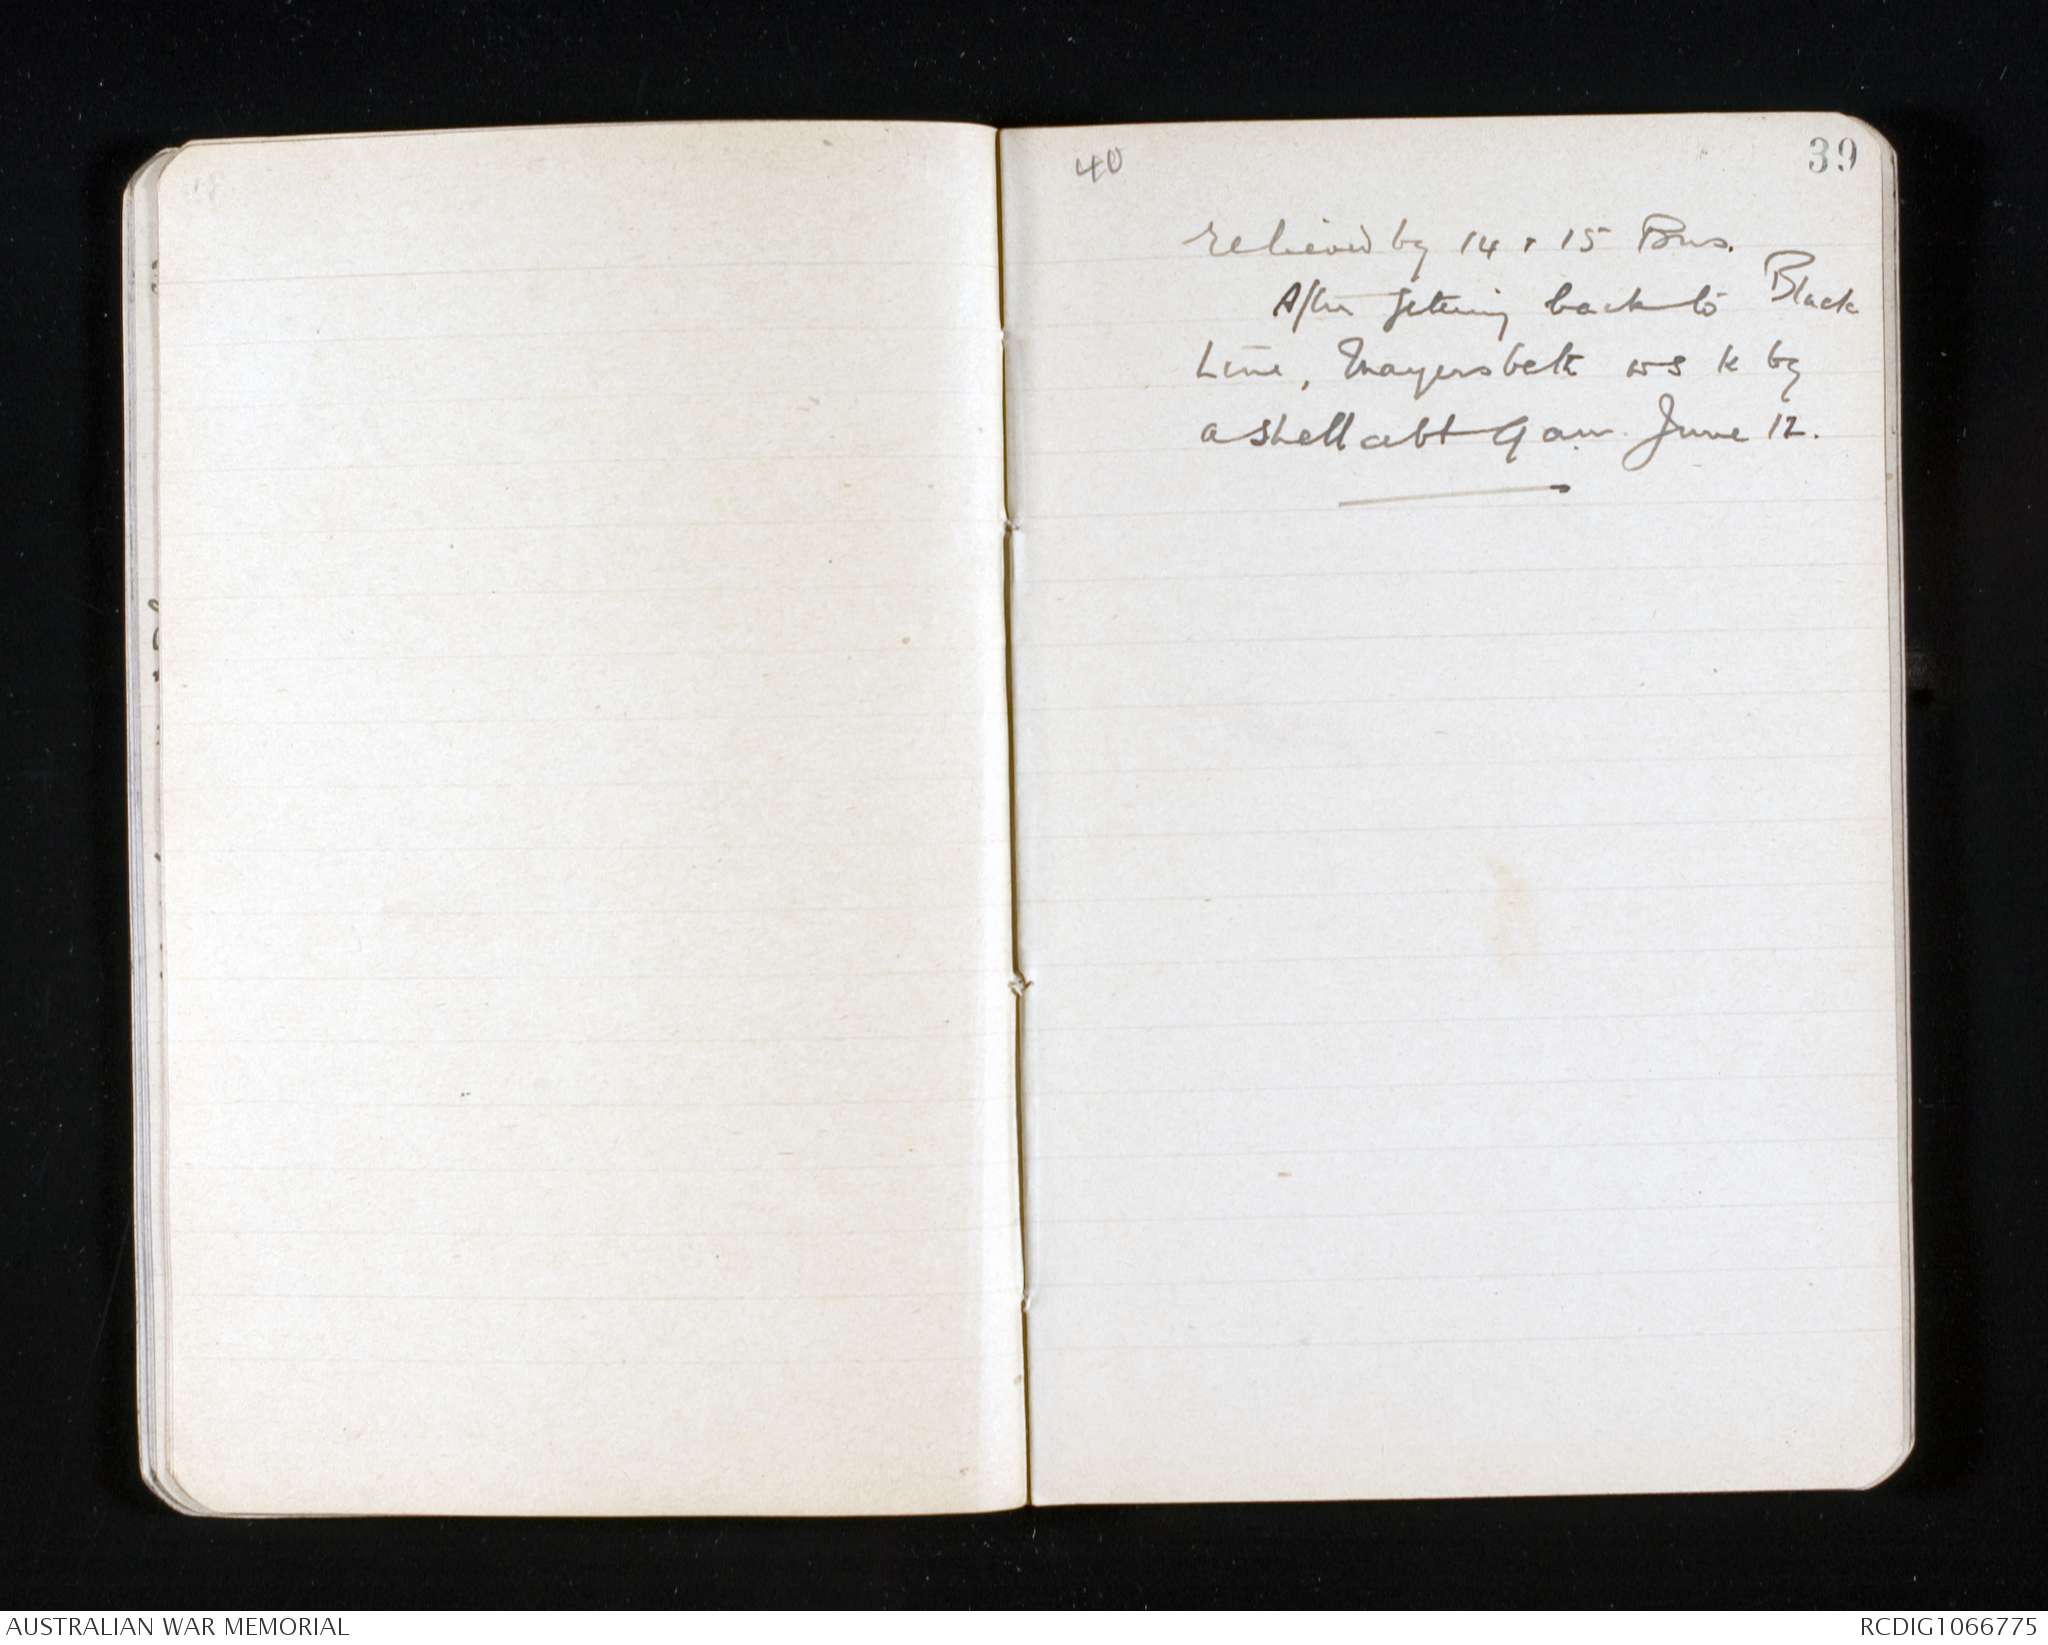 40
39
relieved by 14 & 15 Bns.
After getting back to Black
Line, Mayersbeth ws k by
a shell abt 9 am. June 12.
AUSTRALIAN WAR MEMORIAL
RCDIG1066775